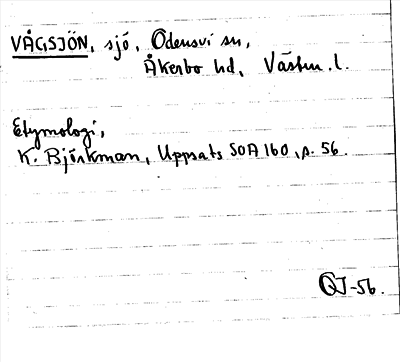 VÅGSJÖN, sjö, Odensvi sn,
Åkerbo hd, Västm. l.
Etymologi,
K. Björkman, Uppsats SOA 160, s. 56.
-56.